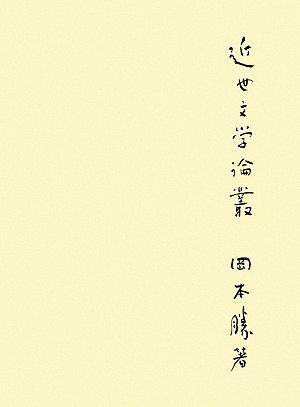 近世文学論叢 岡本勝著